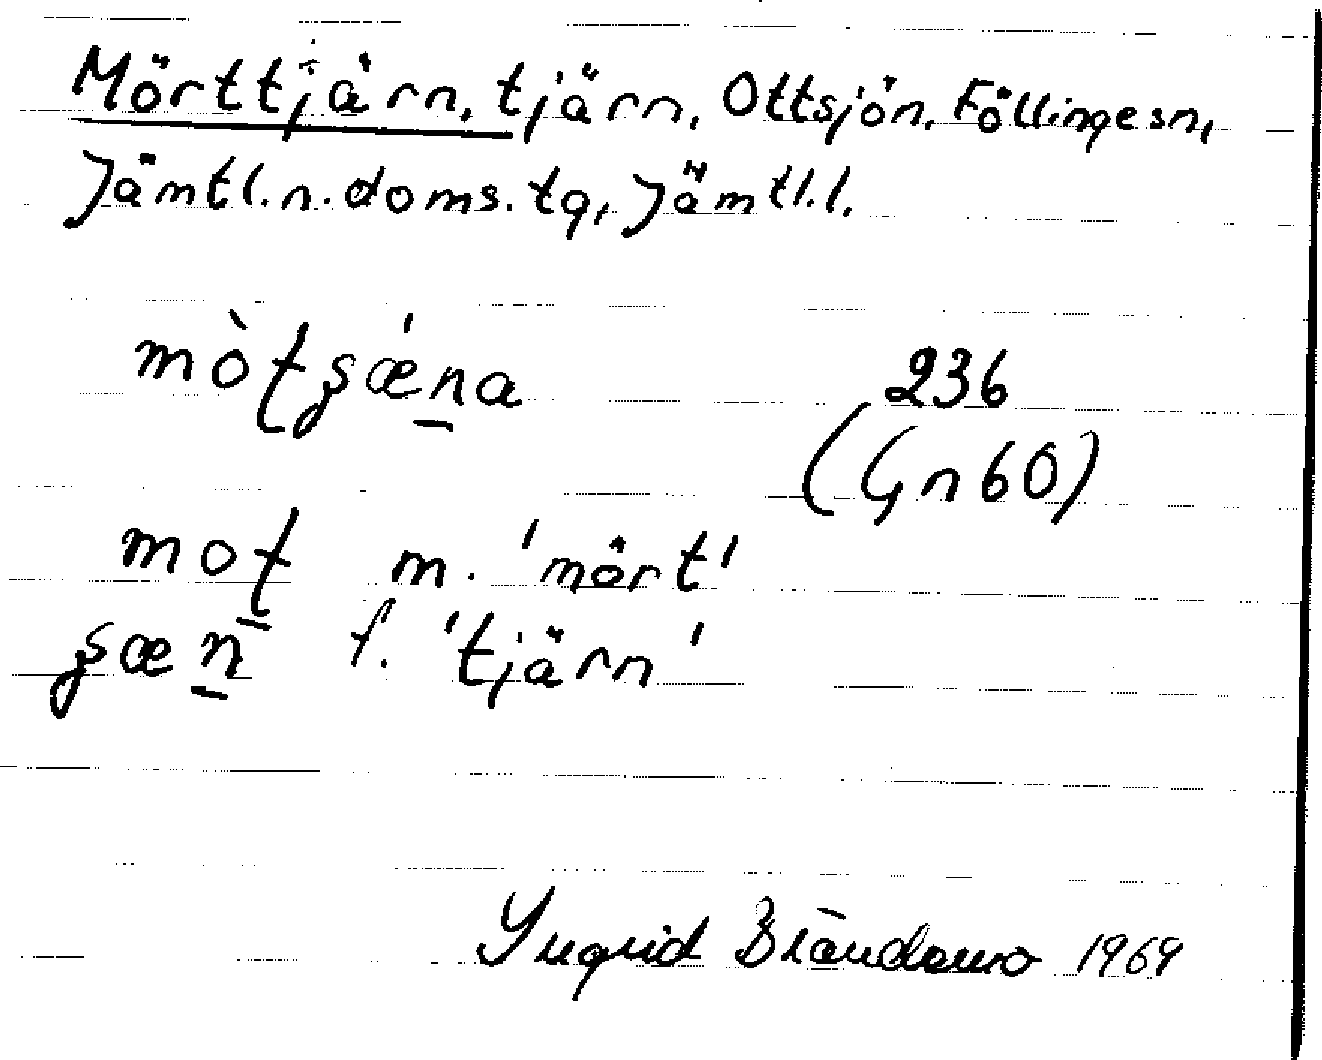 Mörttjärn, tjärn, Ottsjön, Föllinge sn,
Jämtl. n. doms. tg, Jämtl. l.
mòtʂǽna
236
(Gn 60)
mot m. 'mört'
ʂæn f. 'tjärn'
Ingrid 1969